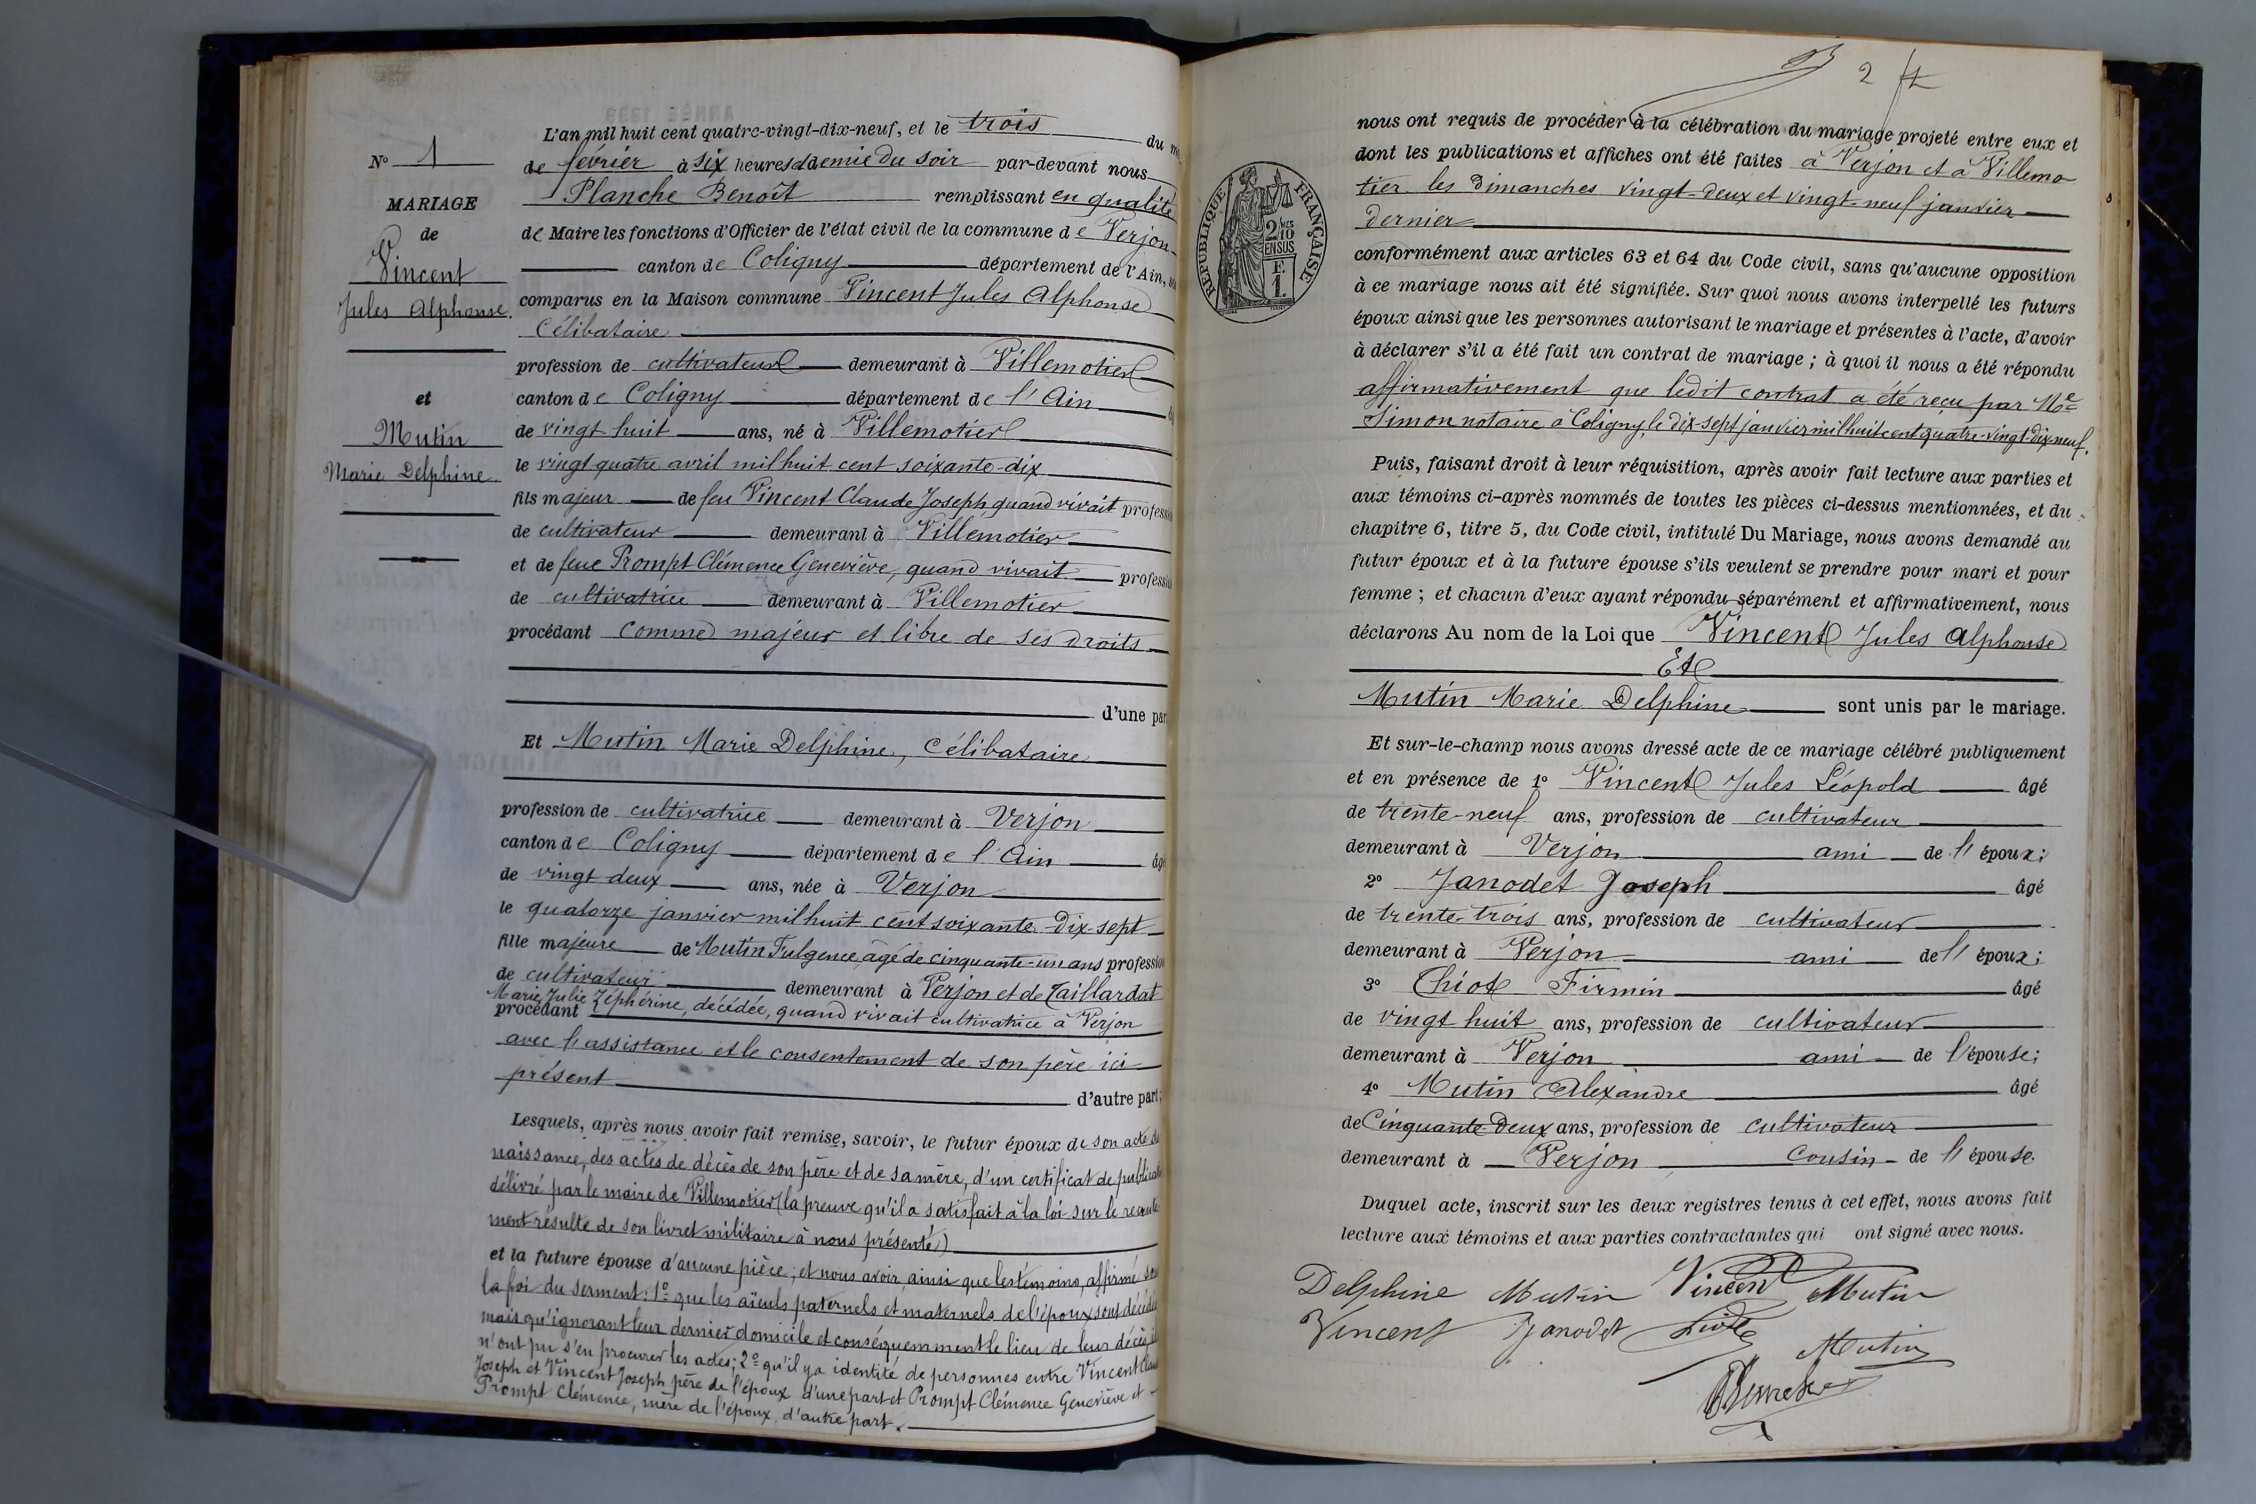 N° 1
MARIAGE
de
Vincent
Jules Alphonse.
et
Mutin
Marie Delphine
L'an mil huit cent quatre-vingt-dix-neuf, et le trois du
de février à six heures demie du soir par-devant nous
Planche Benoît remplissant en qualité
de Maire les fonctions d'Officier de l'état civil de la commune de Verjon
canton de Coligny département de l'Ain,
comparus en la Maison commune Vincent Jules Alphonse
Célibataire
profession de cultivateur demeurant à Villemotier
canton de Coligny département de l'Ain
de vingt huit ans, né à Villemotier
le vingt quatre avril mil huit cent soixante-dix
fils majeur de feu Vincent Claude Joseph, quand vivait profession
de cultivateur demeurant à Villemotier
et de feue Prompt Clémence Geneviève, quand vivait profession
de cultivatrice demeurant à Villemotier
procédant comme majeur et libre de ses droits
d'une par
Et Mutin Marie Delphine, Célibataire
profession de cultivatrice demeurant à Verjon
canton de Coligny département de l'Ain âgé
de vingt deux ans, née à Verjon
le quatorze janvier mil huit cent soixante-dix-sept
fille majeure de Mutin Fulgence, âgé de cinquante-un ans profession
de cultivateur demeurant à Verjon et de Taillardat
Marie Julie Zéphérine, décédée, quand vivait cultivatrice à Verjon
procédant
avec l'assistance et le consentement de son père ici
présent
d'autre part;
Lesquels, après nous avoir fait remise, savoir, le futur époux de son acte de
naissance, des actes de décès de son père et de sa mère, d'un certificat de publication
délivré par le maire de Villemotier (la preuve qu'il a satisfait à la loi sur le recrute
ment résulte de son livret militaire à nous présenté)
et la future épouse d'aucune pièce; et nous avoir, ainsi que les témoins, affirmé sous
la foi du serment: 1° que les aïeuls paternels et maternels de l'époux sont décédés
mais qu'ignorant leur dernier domicile et conséquemment le lieu de leur décès, ils
n'ont pu s'en procurer les actes; 2° qu'il y a identité de personnes entre Vincent Claude
Joseph et Vincent Joseph père de l'époux d'une part et Prompt Clémence Geneviève et
Prompt Clémence, mère de l'époux, d'autre part.
2
RÉPUBLIQUE FRANÇAISE
2 MES 10 EN SUS
F. 1.
nous ont requis de procéder à la célébration du mariage projeté entre eux et
dont les publications et affiches ont été faites à Verjon et à Villemo
tier les Dimanches vingt-deux et vingt-neuf janvier
dernier
conformément aux articles 63 et 64 du Code civil, sans qu'aucune opposition
à ce mariage nous ait été signifiée. Sur quoi nous avons interpellé les futurs
époux ainsi que les personnes autorisant le mariage et présentes à l'acte, d'avoir
à déclarer s'il a été fait un contrat de mariage; à quoi il nous a été répondu
affirmativement que ledit contrat a été reçu par Me
Simon notaire à Coligny, le dix-sept janvier mil huit cent quatre-vingt-dix-neuf.
Puis, faisant droit à leur réquisition, après avoir fait lecture aux parties et
aux témoins ci-après nommés de toutes les pièces ci-dessus mentionnées, et du
chapitre 6, titre 5, du Code civil, intitulé Du Mariage, nous avons demandé au
futur époux et à la future épouse s'ils veulent se prendre pour mari et pour
femme; et chacun d'eux ayant répondu séparément et affirmativement, nous
déclarons Au nom de la Loi que Vincent Jules Alphonse
Et
Mutin Marie Delphine sont unis par le mariage.
Et sur-le-champ nous avons dressé acte de ce mariage célébré publiquement
et en présence de 1° Vincent Jules Léopold âgé
de trente-neuf ans, profession de cultivateur
demeurant à Verjon ami de l'époux;
2° Janodet Joseph âgé
de trente-trois ans, profession de cultivateur
demeurant à Verjon ami de l'époux;
3° Chiot Firmin âgé
de vingt huit ans, profession de cultivateur
demeurant à Verjon ami de l'épouse;
4° Mutin Alexandre âgé
de Cinquante Deux ans, profession de cultivateur
demeurant à Verjon Cousin de l'épouse.
Duquel acte, inscrit sur les deux registres tenus à cet effet, nous avons fait
lecture aux témoins et aux parties contractantes qui ont signé avec nous.
Delphine Mutin Vincent Mutin
Vincent Janodet
Mutin